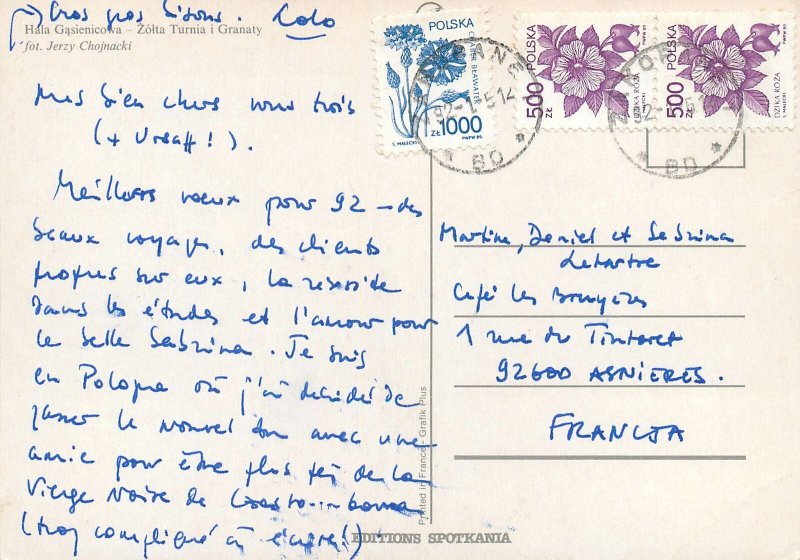 Gros gros bisous. Lolo
Hala Gąsienicowa – Żółta Turnia i Granaty
fot. Jerzy Chojnacki
Mes bien chers vous trois
(+ Ursaff !).
Meilleurs voeux pour 92 – des
beaux voyages, des clients
propres sur eux, la réussite
dans les études et l'amour pour
la belle Sabrina. Je suis
en Pologne où j'ai décidé de
passer le nouvel an avec une
amie pour être plus près de la
Vierge Noire de
(trop compliqué à écrire !)
POLSKA
CHABER BŁAWATEK
ZŁ 1000
PWPW 89
S. MAŁECKI
POLSKA
500 ZŁ
DZIKA RÓŻA
PWPW 89
S. MAŁECKI
POLSKA
500 ZŁ
DZIKA RÓŻA
PWPW 89
S. MAŁECKI
ZAKOPANE
BD
ZAKOPANE
BD
Martine, Daniel et Sabrina
Letartre
Café les Bruyères
1 rue du Tintoret
92600 ASNIERES.
FRANCJA
Printed in France - Grafik Plus
EDITIONS SPOTKANIA